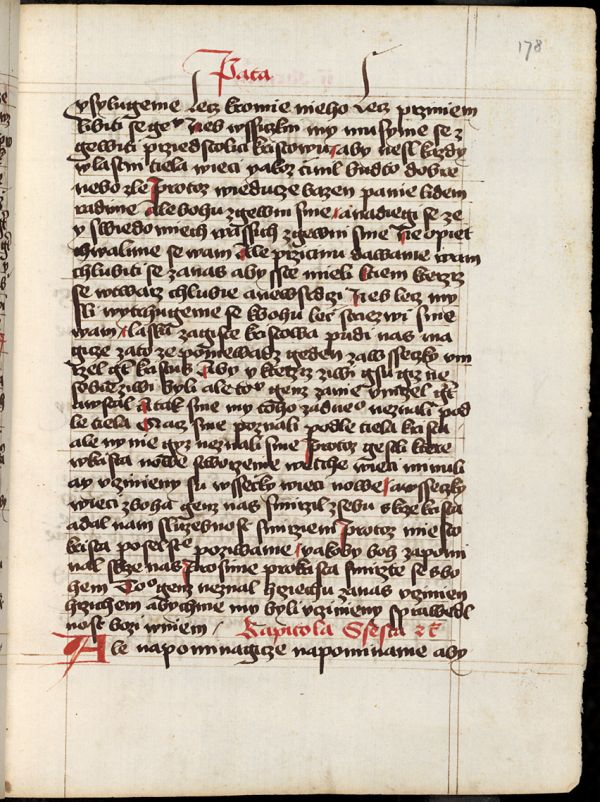 178
Pata
vsylugeme lecz kromie nieho lecz przniem
bliti se geᵒ Neb wssiczkni my musyme se z
gewiti przied stolici kristowu aby nesl kazdy
wlastni tiela wieci yakoz czinil budto dobre
nebo zle Protoz wieduczze bazen panie lidem
radime Ale bohu zgewni sme a nadiegi se ze
y swiedomiech wassich zgewni sme Ne opiet
chwalime se wam Ale prziczinu dawame wam
chlubiti se za nas aby ste mieli ktiem kterziz
se wtwarz chlubie a ne wsrdczi Neb lecz my
sli wytrhugeme se bohu lec strziezwi sme
wam laska zagiste kristowa pudi nas ma
gicze zato ze poniewadz geden za wssecky um
rzel gt kristus Aby y kterziz ziwi gsu giz ne
sobie ziwi byli ale toᵒ genz zanie umrzel gt
a wstal A tak sme my zadneᵒ neznali pod
le tiela A acz sme poznali podle tiela krista
ale ny nie gyz neznali sme Protoz gestli ktere
w krista nowe stworzenie wetche wieci minuli
ay vczinieny su wssecky wieci nowe a wssecky
wieci z boha genz nas smirzil z sebu skrze krista
a dal nam sluzebnost smirzieni Protoz miesto
krista poselstᵉ pozwame yakoby boh zapomi
nal skrze nas prosime pro krista smirzte se s bo
hem Toᵒ genz neznal hrziechu za nas vczinien
hrziechem abychme my byli vczinieny sprawedl
nost bozi w niem Kapitola Ssesta
Ale napomnagicze napominame aby